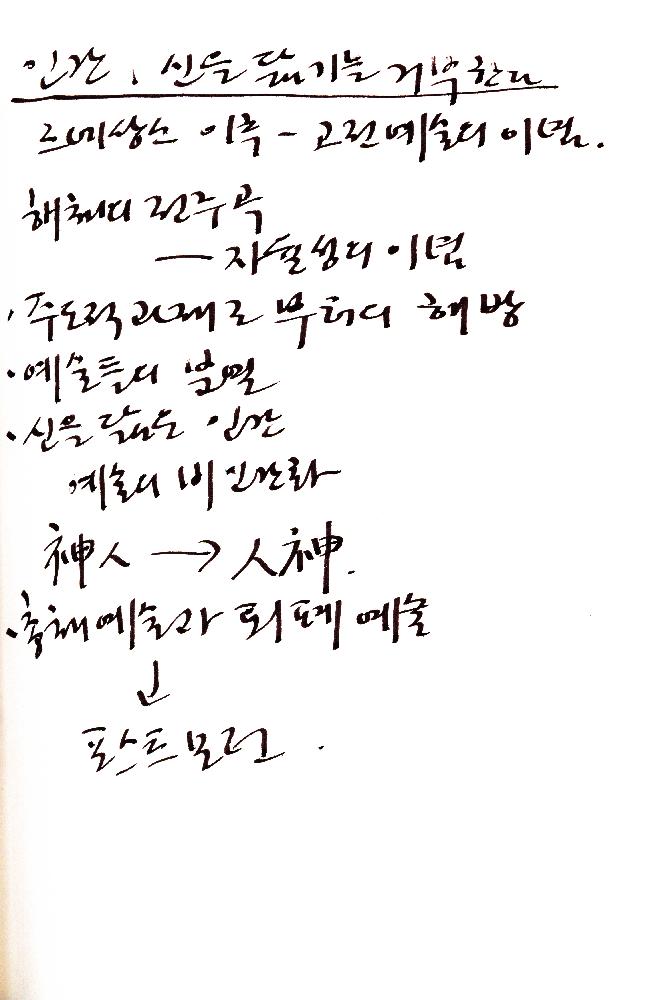 인간, 신을 닮기를 거부한다
르네상스 이후 - 고전예술의 이념.
해체의 전주곡
— 자율성의 이념
· 주도적 과제로부터의 해방
· 예술들의 분열
· 신을 닮는 인간
예술의 비인간화
神人 → 人神.
· 축제예술과 퇴폐예술
↓
포스트모던.